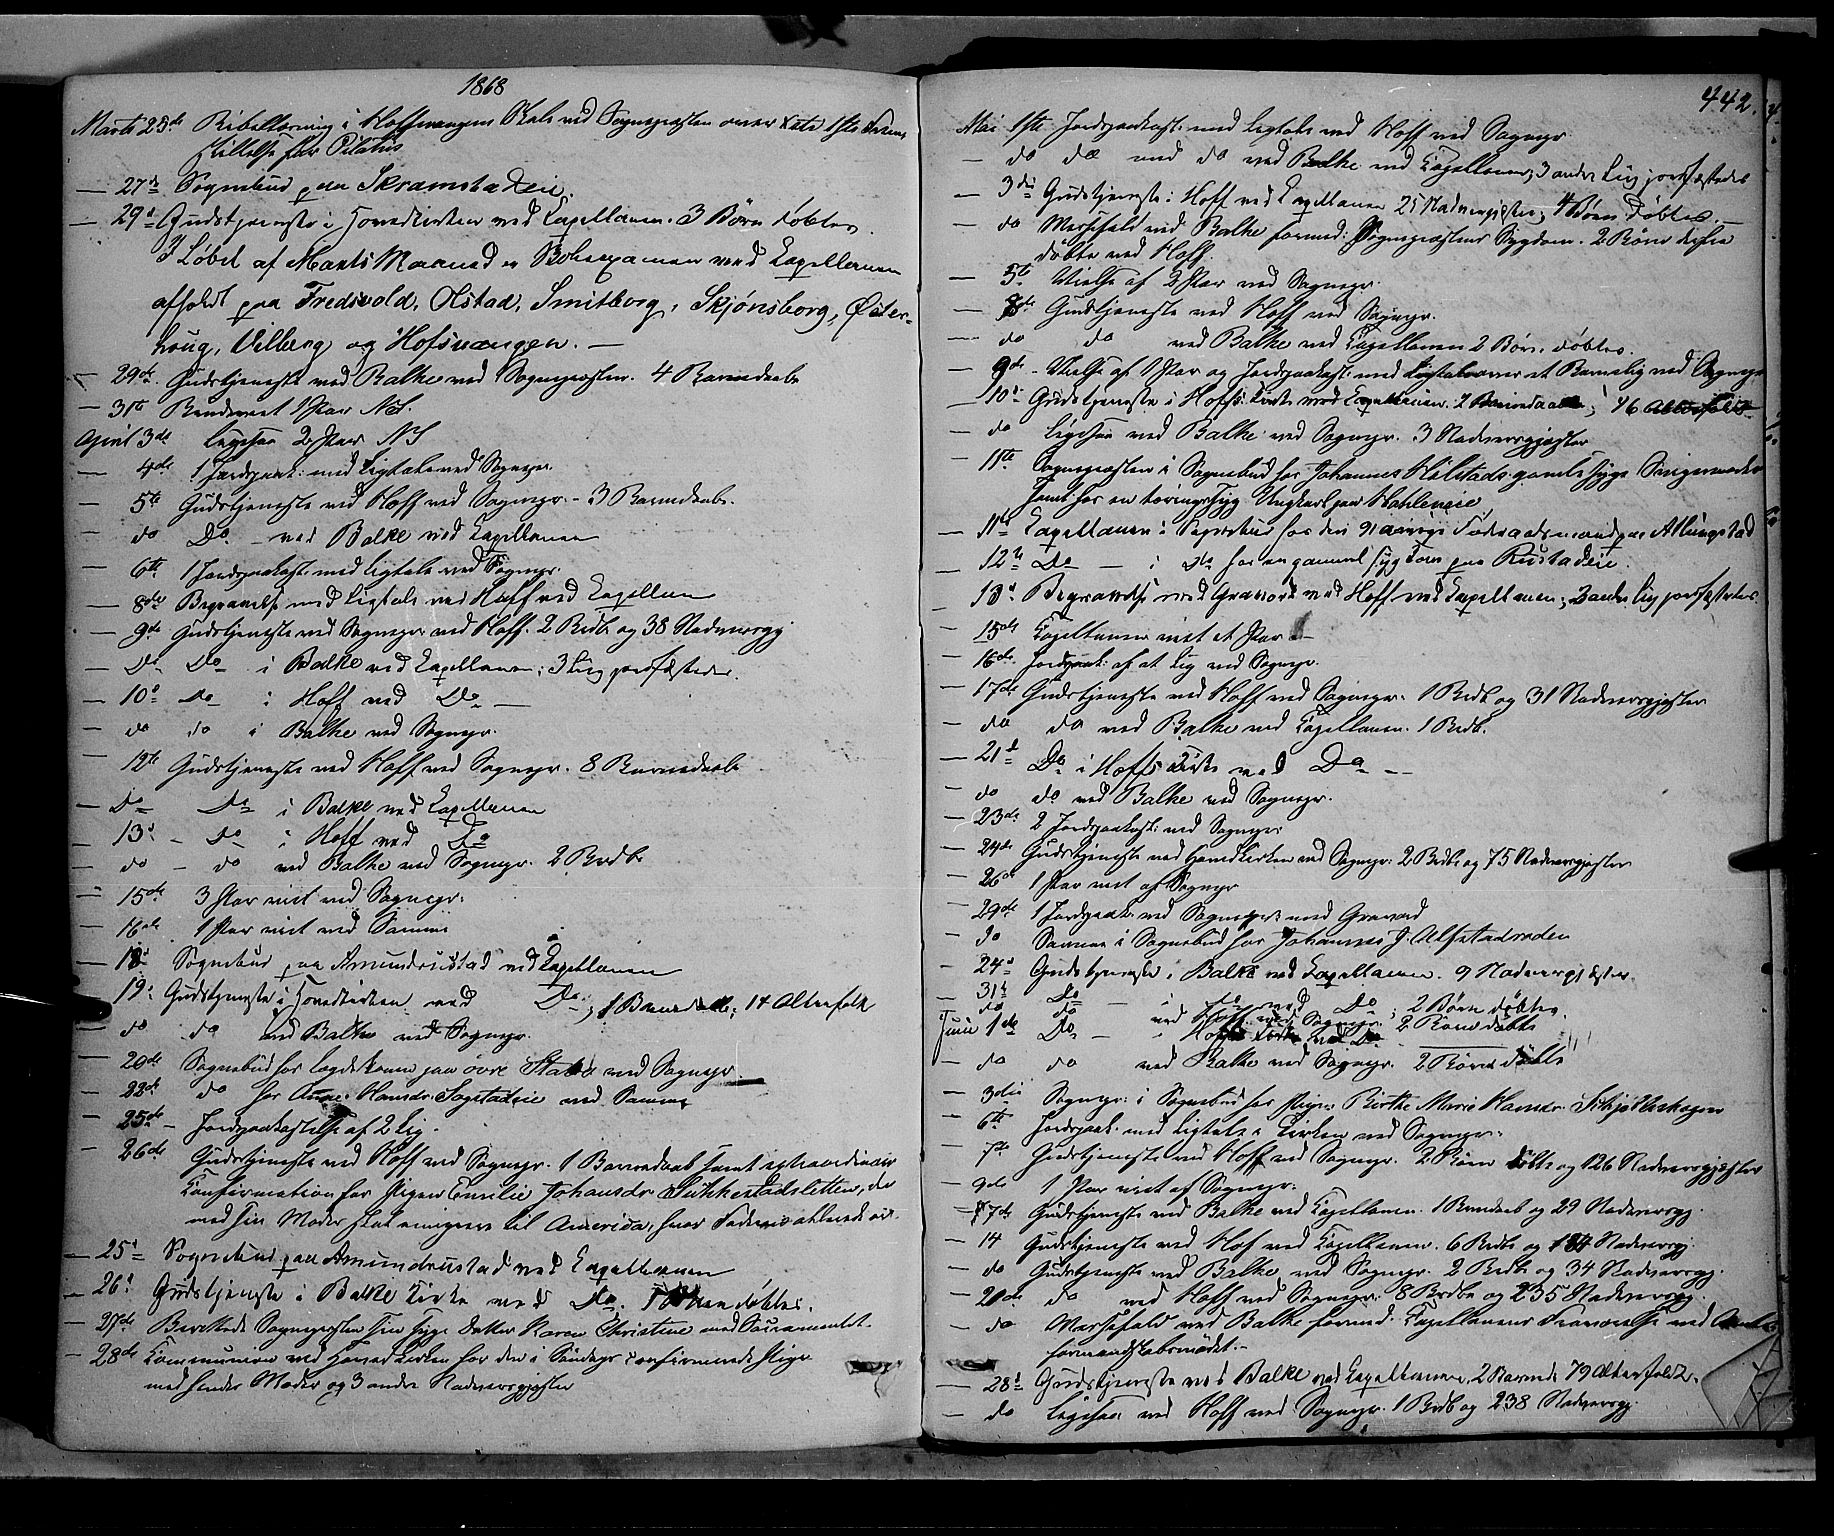 1868
Marts 25de Bibellæsning i Hoffsvangens Skole ved Sognepræsten over
stillelse for Pilatus
— 27de Sognebud paa Skramstadeie.
— 29de Gudstjeneste i Hovedkirken ved Capellanen. 3 Børn døbtes.
I Løbet af Marts Maaned er Bohexamen ved Capellanen
afholdt paa Fredsvold, Olstad, Smitborg, Skjønsborg, Øster-
houg, Vilberg og Hofsvangen. —
— 29de Gudstjeneste ved Balke ved Sognepræsten. 4 Barnedaab
— 31te 1 Par
April 3de Ligesaa 2 Par
— 4de 1 Jordpaak: med Ligtale ved Sognepr.
— 5te Gudstjeneste ved Hoff ved Sognepr. - 3 Barnedaab.
— do Do — ved Balke ved Capellanen
— 6te 1 Jordpaakast: med Ligtale ved Sognepr.
— 8de Begravelse med Ligtale ved Hoff ved Capellanen
— 9de Gudstjeneste ved Sognepr. ved Hoff. 2 Brdb og 38 Nadvergj
— Do Do i Balke ved Capellanen; 3 Lig jordfæstedes.
— 10de Do i Hoff ved Do —
— do do i Balke ved Sognepr.
— 12te Gudstjeneste ved Hoff ved Sognepr. 8 Barnedaab
— Do Do i Balke ved Capellanen
— 13de - Do i Hoff ved Do
— do - do ved Balke ved Sognepr. 2 Brdb
— 15de 3 Par viet ved Sognepr.
— 16de 1 Par viet ved Samme
— 18de Sognebud paa Amundrustad ved Capellanen
— 19de Gudstjeneste i Hovedkirken ved Do; 1 14 Altersfolk
— do do ved Balke ved Sognepr.
— 20de Sognebud for Lægdskone paa øvre Stabo ved Sognepr
— 22de do for Anne Hansdr. Sogstadeie ved Samme
— 25de - Jordpaakastelse af 2 Lig.
— 26de Gudstjeneste ved Hoff ved Sognepr. 1 Barnedaab samt extraordinair
Konfirmation for Pigen Emilie Johansdr. Sukkestadsletten, der
med sin Moder skal emigrere til America, hvor Faderen allerede er.
— 25de Sognebud paa Amundrustad ved Capellanen
— 26de Gudstjeneste i Balke Kirke ved Do. døbtes.
— 27de Berettede Sognepræsten sin syge Datter Karen Christine med Sacramentet.
— 28de Communion ved Hovedkirken for den i Søndags confirmerede Pige
med hendes Moder og 3 andre Nadvergjæster
442.
Mai 1ste Jordpaakast: med Ligtale ved Hoff ved Sognepr
— do do med do ved Balke ved Capellanen; 3 andre Lig jordfæstedes
— 3die Gudstjeneste i Hoff ved Capellanen 25 Nadvergjester; 4 Børn Døbtes. —
— do Messefald ved Balke formed: Sognepræstens Sygdom. 2 Børn derfra
døbte ved Hoff.
— 5te Vielse af 2 Par ved Sognepr.
— 8de Gudstjeneste ved Hoff ved Sognepr.
— do do ved Balke ved Capellanen 2 Børn døbtes.
— 9de - Vielse af 1 Par og Jordpaakast: med Ligtale over et Barnelig ved Sognepr
— 10de Gudstjeneste i Hoffs Kirke ved Capellanen. 2 Barnedaab; 46 Altersfolk
— do Ligesaa ved Balke ved Sognepr. 3 Nadvergjæster
— 11te Sognepræsten i Sognebud for Johannes Hilstads gamle syge Svigermoder
samt for en tæringssyg Ungkarl paa Hohleneie
— 11te Capellanen i Sognebud hos den 91 aarige Føderaadsmand paa Allungstad
— 12te Do — i do hos en gammel syg Kone paa Rustadeie.
— 13de Begravelse med Gravord ved Hoff ved Capellanen; 3 andre Lig jordfæstedes.
— 15de Capellanen viet et Par —
— 16de Jordpaak: af et Lig ved Sognepr.
— 17de Gudstjeneste ved Hoff ved Sognepr. 1 Brdb og 31 Nadvergjester
— do do ved Balke ved Capellanen. 1 Brdb.
— 21de Do i Hoffs Kirke ved Do —
— do do ved Balke ved Sognepr.
— 23de 2 Jordpaakast: ved Sognepr.
— 24de Gudstjeneste ved Hovedkirken ved Sognepr. 2 Brdb og 75 Nadvergjester
— 26de 1 Par viet af Sognepr
— 29de 1 Jordpaak: ved Sognepr: med Gravord
— do Samme i Sognebud for Johannes J. Alfstadreden
— 24de Gudstjeneste i Balke ved Capellanen. 9 Nadvergjæster.
— 31te Do — i do ved Do; 2 Børn døbtes.
— do do ved Hoff ved Sognepr. 2 Børn døbte
Juni 1ste Do — i Hoffs Kirke ved Do
— do do ved Balke ved Sognepr. 2 Børn døbte
— 3die Sognepr: i Sognebud for Pigen Birthe Marie Hansdr.
— 6te Jordpaak: med Ligtale i Kirken ved Sognepr.
— 7de Gudstjeneste ved Hoff ved Sognepr. 2 Børn døbte og 126 Nadvergjester
— 9de 1 Par viet af Sognepr.
— 7de Gudstjeneste ved Balke ved Capellanen. 1 Barnedaab og 29 Nadvergj.
— 14 Gudstjeneste ved Hof ved Capellanen. 6 Brdb og 184 Nadvergj
— do Gudstjeneste ved Balke ved Sognepr. 2 Brdb og 34 Nadvergj.
— 20de do ved Hoff ved Sognepr. 8 Brdb og 235 Nadvergj
— do Messefald ved Balke formed. Capellanens Fraværelse ved
formandskabsmødet. —
— 28de Gudstjeneste ved Balke ved Capellanen, 2 Barned. 79 Altersfolk.
— do Ligesaa ved Hoff ved Sognepr. 1 Brdb og 238 Nadvergj.